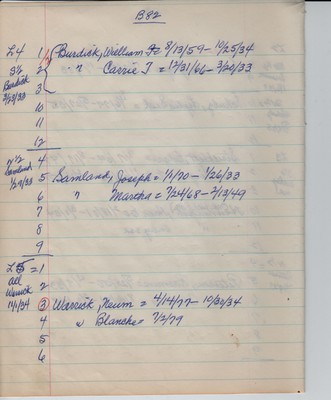 B82
L4 1 Burdick, William F = 8/13/59 - 10/25/34
S½ 2 " Carrie T = 12/31/66 - 3/20/33
Burdick 3
3/23/33
10
11
12
N½ 4
Samland 5 Samland, Joseph = 1/1/70 - 1/26/33
1/29/33 6 " Martha = 7/24/68 - 2/13/49
7
8
9
L5 = 1
all 2
Warrick 3 Warrick, = 4/14/77 - 10/30/34
11/1/34 4 " Blanche = 7/2/79
5
6